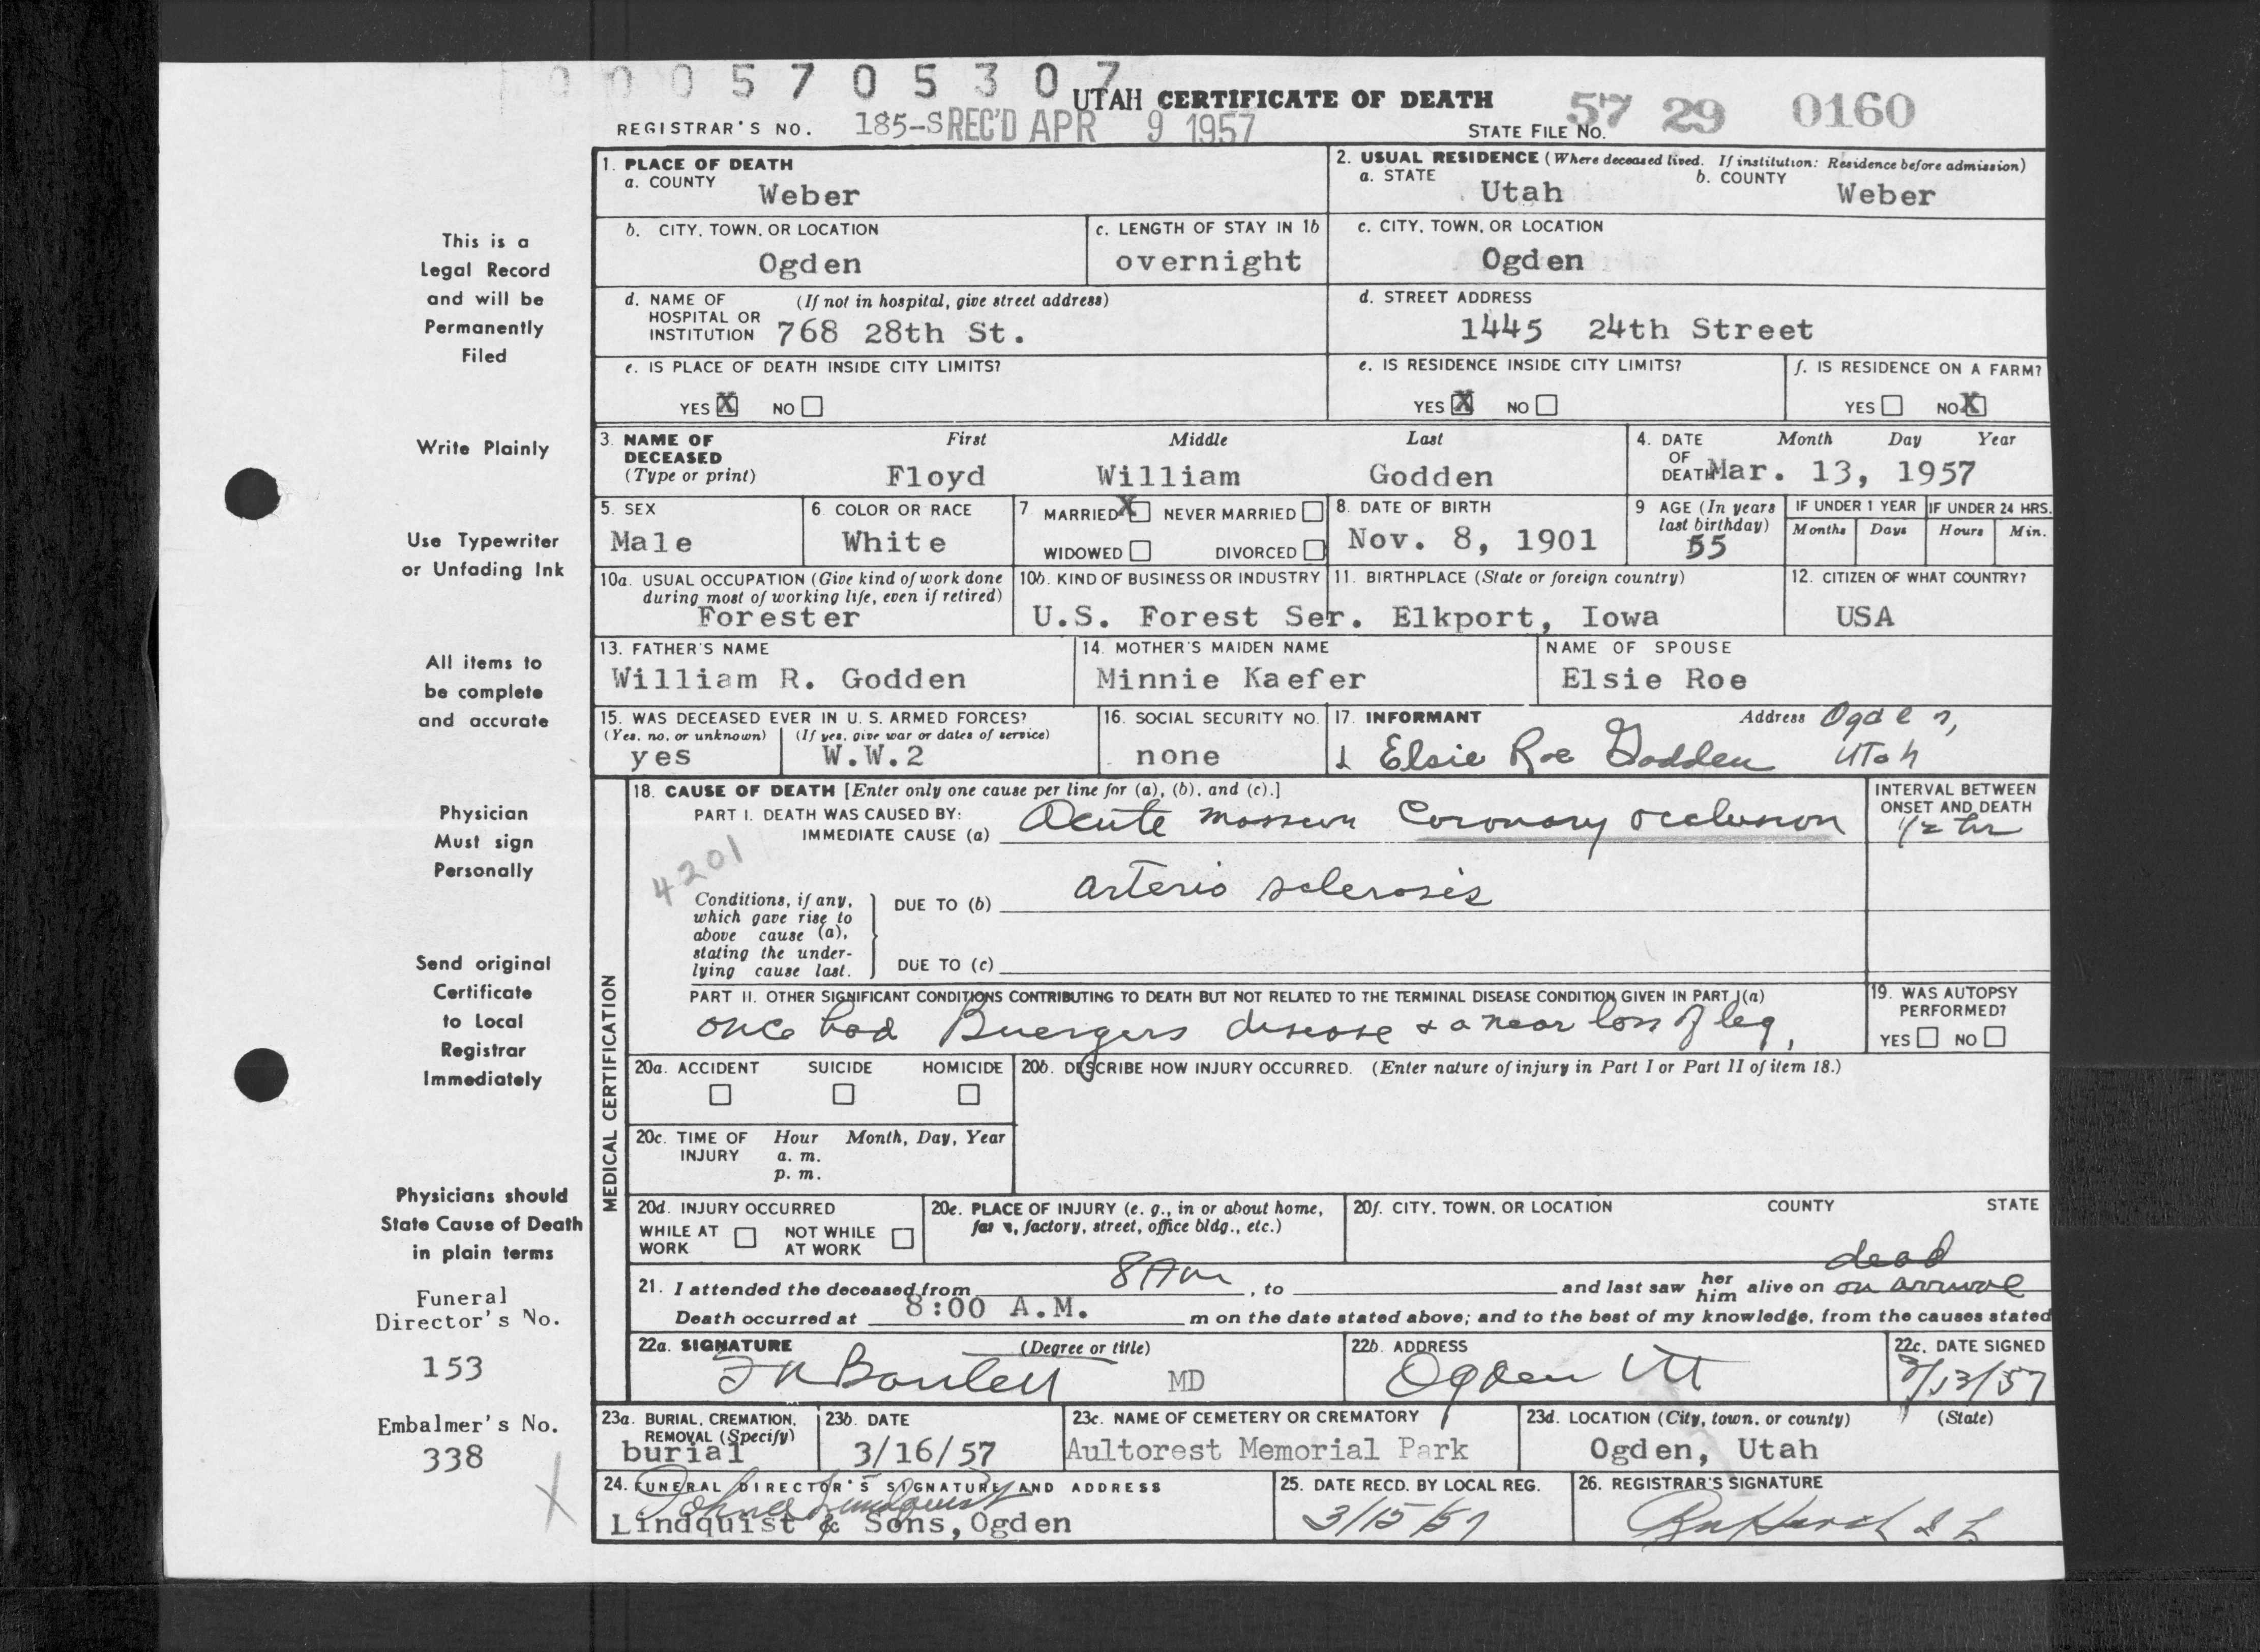 0005705307
UTAH CERTIFICATE OF DEATH
57 29 0160
REGISTRAR'S NO. 185-S REC'D APR 9 1957 STATE FILE NO.
1. PLACE OF DEATH
a. COUNTY Weber
2. USUAL RESIDENCE (Where deceased lived. If institution: Residence before admission)
a. STATE Utah b. COUNTY Weber
b. CITY, TOWN, OR LOCATION Ogden
c. LENGTH OF STAY IN 1b overnight
c. CITY, TOWN, OR LOCATION Ogden
d. NAME OF HOSPITAL OR INSTITUTION (If not in hospital, give street address) 768 28th St.
d. STREET ADDRESS 1445 24th Street
e. IS PLACE OF DEATH INSIDE CITY LIMITS?
YES X NO
e. IS RESIDENCE INSIDE CITY LIMITS?
YES X NO
f. IS RESIDENCE ON A FARM?
YES NO X
3. NAME OF DECEASED (Type or print) First Middle Last
Floyd William Godden
4. DATE OF DEATH Month Day Year
Mar. 13, 1957
5. SEX Male
6. COLOR OR RACE White
7. MARRIED X NEVER MARRIED
WIDOWED DIVORCED
8. DATE OF BIRTH Nov. 8, 1901
9 AGE (In years last birthday) 55
IF UNDER 1 YEAR Months Days
IF UNDER 24 HRS. Hours Min.
10a. USUAL OCCUPATION (Give kind of work done during most of working life, even if retired) Forester
10b. KIND OF BUSINESS OR INDUSTRY U.S. Forest Ser.
11. BIRTHPLACE (State or foreign country) Elkport, Iowa
12. CITIZEN OF WHAT COUNTRY? USA
13. FATHER'S NAME William R. Godden
14. MOTHER'S MAIDEN NAME Minnie Kaefer
NAME OF SPOUSE Elsie Roe
15. WAS DECEASED EVER IN U. S. ARMED FORCES?
(Yes, no, or unknown) (If yes, give war or dates of service)
yes W.W.2
16. SOCIAL SECURITY NO. none
17. INFORMANT Elsie Roe Godden
Address Ogden, Utah
MEDICAL CERTIFICATION
18. CAUSE OF DEATH [Enter only one cause per line for (a), (b), and (c).]
PART I. DEATH WAS CAUSED BY:
IMMEDIATE CAUSE (a) Acute massive Coronary occlusion
INTERVAL BETWEEN ONSET AND DEATH
1/2 hr
4201
Conditions, if any, which gave rise to above cause (a), stating the underlying cause last.
DUE TO (b) arterio sclerosis
DUE TO (c)
PART II. OTHER SIGNIFICANT CONDITIONS CONTRIBUTING TO DEATH BUT NOT RELATED TO THE TERMINAL DISEASE CONDITION GIVEN IN PART I(a)
once had Buergers disease & a near loss of leg,
19. WAS AUTOPSY PERFORMED?
YES NO
20a. ACCIDENT SUICIDE HOMICIDE
20b. DESCRIBE HOW INJURY OCCURRED. (Enter nature of injury in Part I or Part II of item 18.)
20c. TIME OF INJURY Hour Month, Day, Year
a. m.
p. m.
20d. INJURY OCCURRED
WHILE AT WORK NOT WHILE AT WORK
20e. PLACE OF INJURY (e. g., in or about home, farm, factory, street, office bldg., etc.)
20f. CITY, TOWN, OR LOCATION COUNTY STATE
21. I attended the deceased from 8 Am, to and last saw her him alive on dead on arrival
Death occurred at 8:00 A.M. m on the date stated above; and to the best of my knowledge, from the causes stated
22a. SIGNATURE (Degree or title)
Bartlett MD
22b. ADDRESS Ogden Ut
22c. DATE SIGNED 3/13/57
23a. BURIAL, CREMATION, REMOVAL (Specify) burial
23b. DATE 3/16/57
23c. NAME OF CEMETERY OR CREMATORY Aultorest Memorial Park
23d. LOCATION (City, town, or county) (State)
Ogden, Utah
24. FUNERAL DIRECTOR'S SIGNATURE AND ADDRESS
Lindquist
Lindquist & Sons, Ogden
25. DATE RECD. BY LOCAL REG. 3/15/57
26. REGISTRAR'S SIGNATURE
This is a
Legal Record
and will be
Permanently
Filed
Write Plainly
Use Typewriter
or Unfading Ink
All items to
be complete
and accurate
Physician
Must sign
Personally
Send original
Certificate
to Local
Registrar
Immediately
Physicians should
State Cause of Death
in plain terms
Funeral
Director's No.
153
Embalmer's No.
338
X